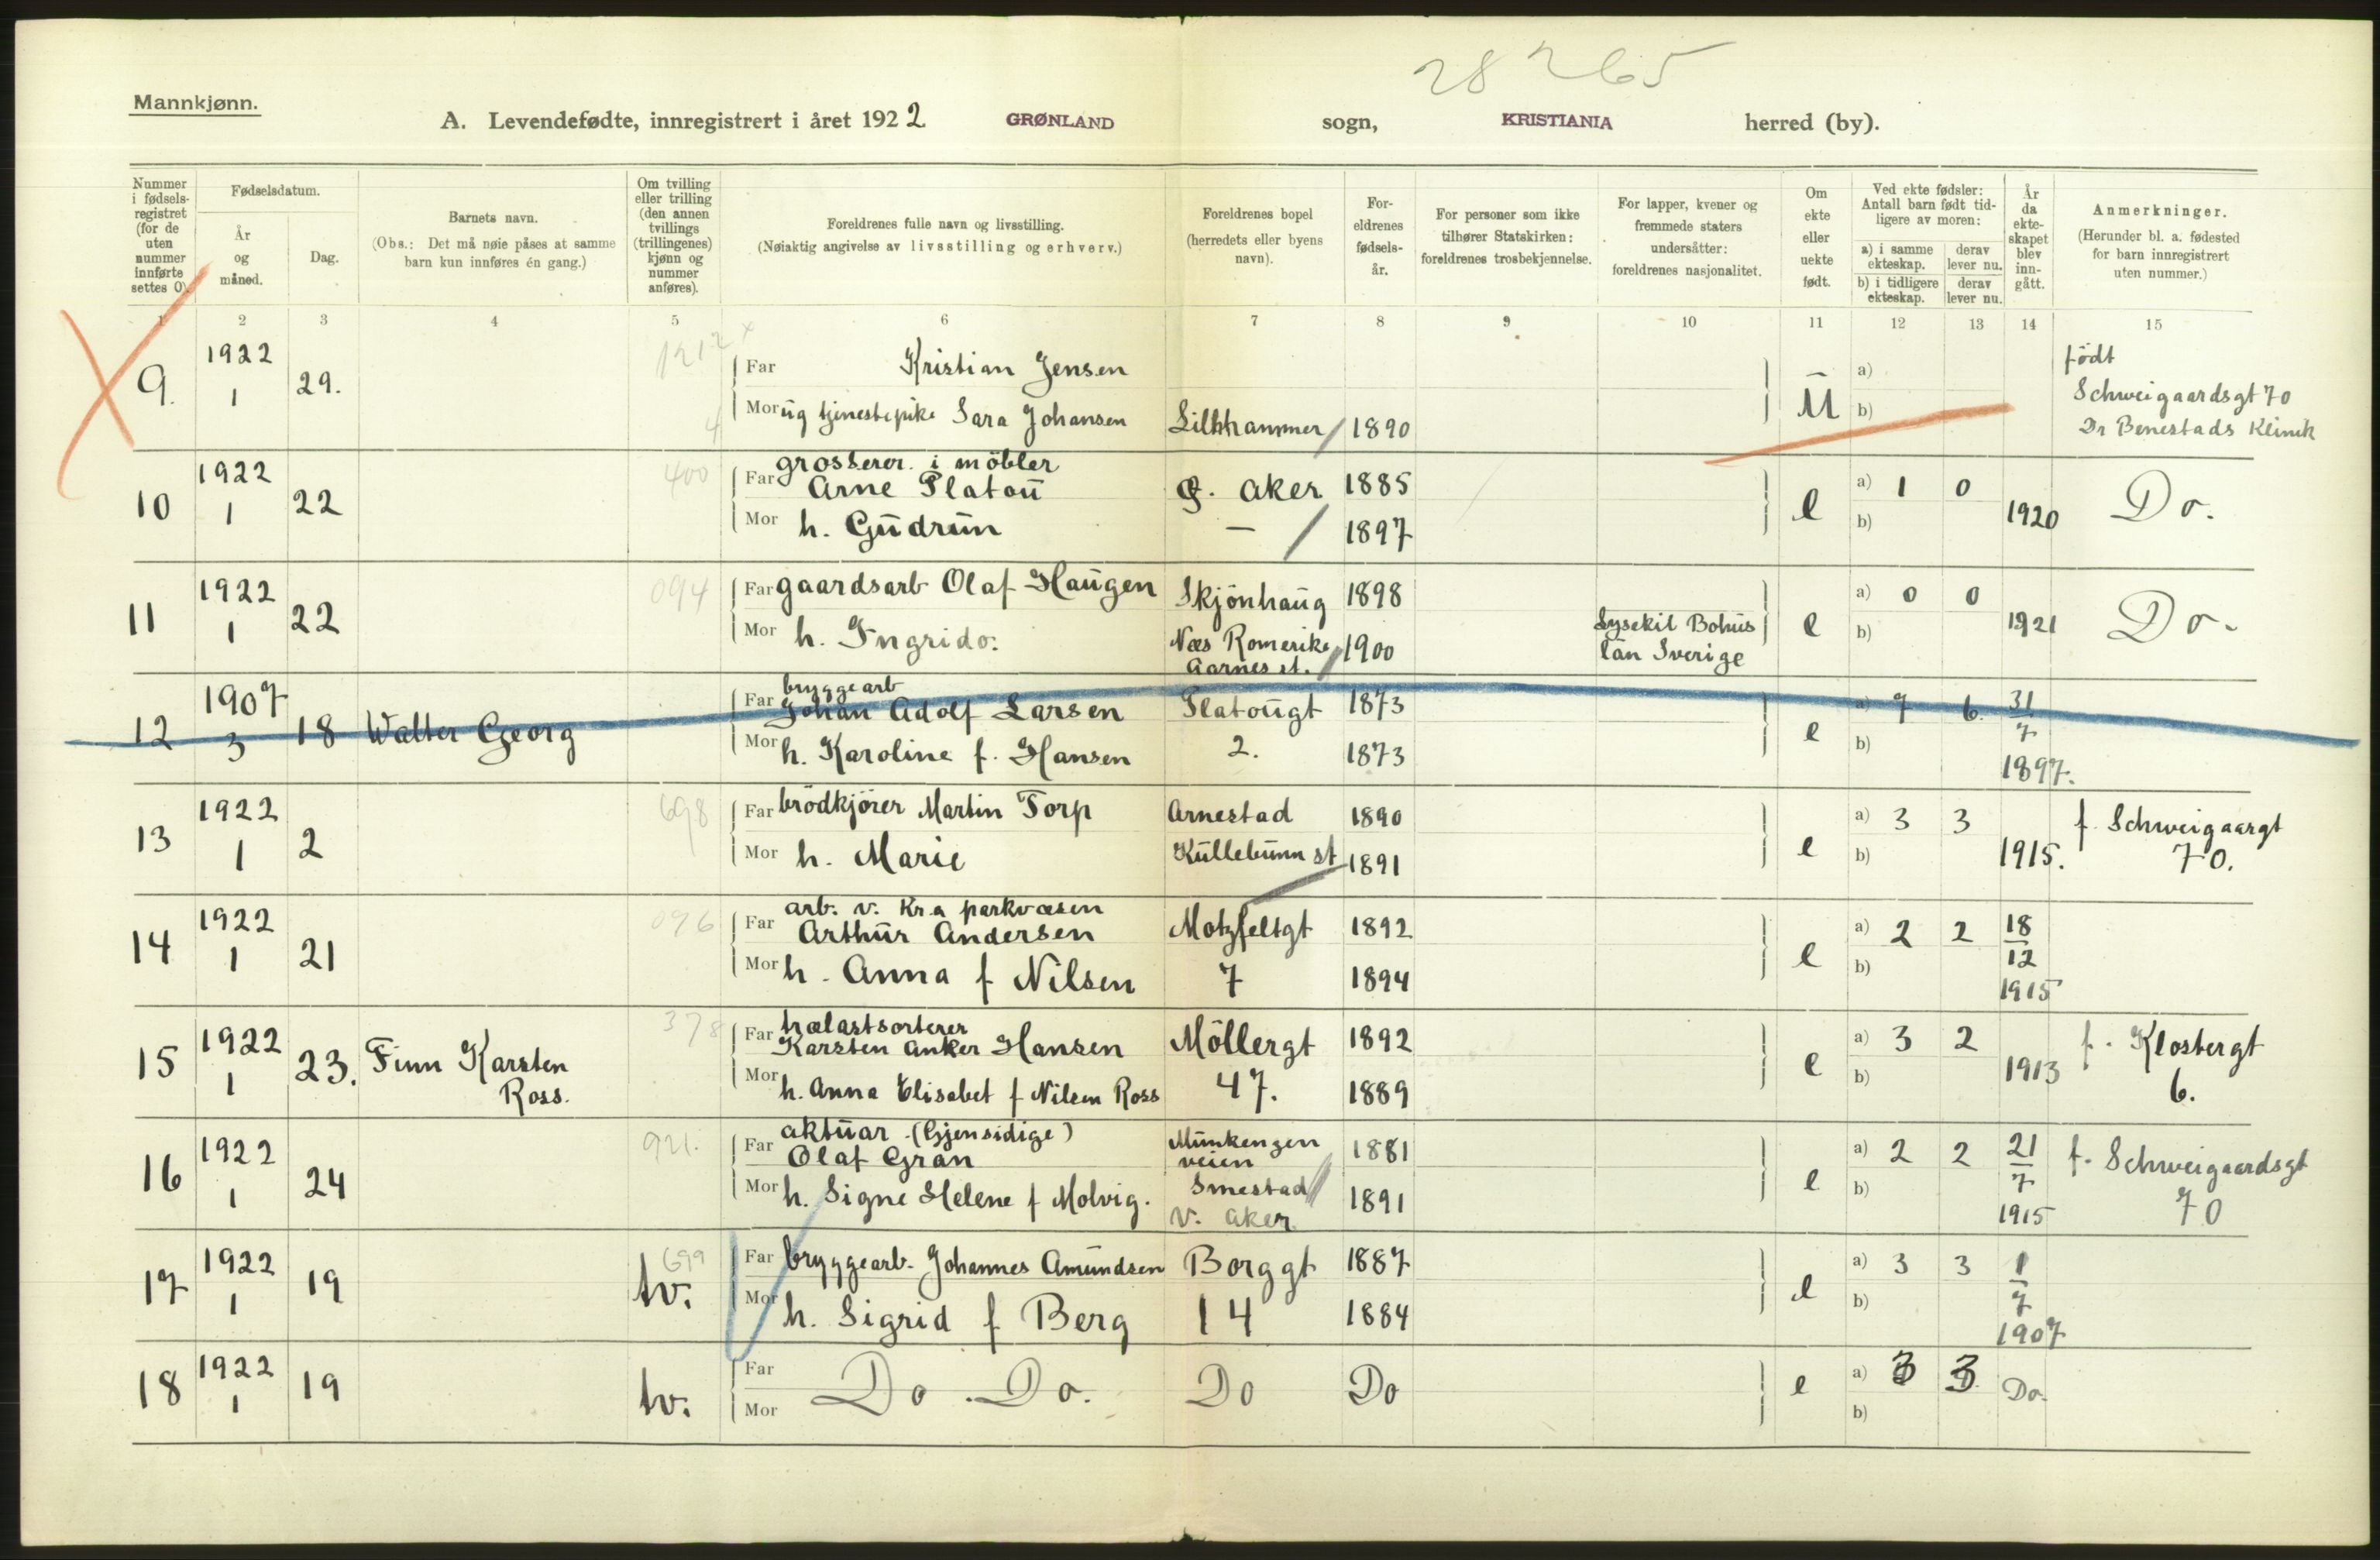 28 265
Mannkjønn.
A. Levendefødte, innregistrert i året 1922. GRØNLAND sogn, KRISTIANIA herred (by).
Nummer i fødsels-registret (for de uten nummer innførte settes 0).
Fødselsdatum.
År og måned.
Dag.
Barnets navn.
(Obs.: Det må nøie påses at samme barn kun innføres én gang.)
Om tvilling eller trilling (den annen tvillings (trillingenes) kjønn og nummer anføres).
Foreldrenes fulle navn og livsstilling.
(Nøiaktig angivelse av livsstilling og erhverv.)
Foreldrenes bopel (herredets eller byens navn).
For-eldrenes fødsels-år.
For personer som ikke tilhører Statskirken: foreldrenes trosbekjennelse.
For lapper, kvener og fremmede staters undersåtter: foreldrenes nasjonalitet.
Om ekte eller uekte født.
Ved ekte fødsler: Antall barn født tid-ligere av moren:
a) i samme ekteskap. derav lever nu.
b) i tidligere ekteskap. derav lever nu.
År da ekte-skapet blev inn-gått.
Anmerkninger.
(Herunder bl. a. fødested for barn innregistrert uten nummer.)
1 2 3 4 5 6 7 8 9 10 11 12 13 14 15
9. 1922 1 29. 1212 x
Far Kristian Jensen
Mor ug tjenestepike Sara Johansen Lillehammer 1890
4
U a) b)
født
Schweigaardsgt 70
Dr Benestads Klinik
10 1922 1 22 400
Far grosserer i möbler
Arne Platou Ø. Aker 1885
Mor h. Gudrun — 1897
e a) 1 0 b) 1920 Do.
11 1922 1 22 094
Far gaardsarb Olaf Haugen Skjönhaug 1898
Mor h. Ingrid Næs Romerike
Aarnes st. 1900
Lysekil Bohus
län Sverige
e a) 0 0 b) 1921 Do.
12 1907 3 18 Walter Georg
Far bryggearb
Johan Adolf Larsen Platougt 1873
Mor h. Karoline f. Hansen 2. 1873
e a) 7 6. b) 31/7 1897.
13 1922 1 2 698
Far brödkjörer Martin Torp Arnestad 1890
Mor h. Marie Kullebunn st 1891
e a) 3 3 b) 1915.
f. Schweigaargt
70.
14 1922 1 21 096
Far arb. v. Kr.a parkvæsen
Arthur Andersen Motzfeltgt 1892
Mor h. Anna f Nilsen 7 1894
e a) 2 2 b) 18/12 1915
15 1922 1 23. Finn Karsten
Ross. 378
Far trælastsorterer
Karsten Anker Hansen Möllergt 1892
Mor h. Anna Elisabet f Nilsen Ross 47. 1889
e a) 3 2 b) 1913
f. Klostergt
6.
16 1922 1 24 921.
Far aktuar (Gjensidige)
Olaf Gran Munkengen
veien 1881
Mor h. Signe Helene f Molvig. Smestad
V. Aker. 1891
e a) 2 2 b) 21/7 1915
f. Schweigaardsgt
70
17 1922 1 19 699 tv.
Far bryggearb. Johannes Amundsen Borggt 1887
Mor h. Sigrid f Berg 14 1884
e a) 3 3 b) 1/7 1907
18 1922 1 19 tv.
Far
Mor Do. Do. Do Do
e a) 3 3. b) Do.